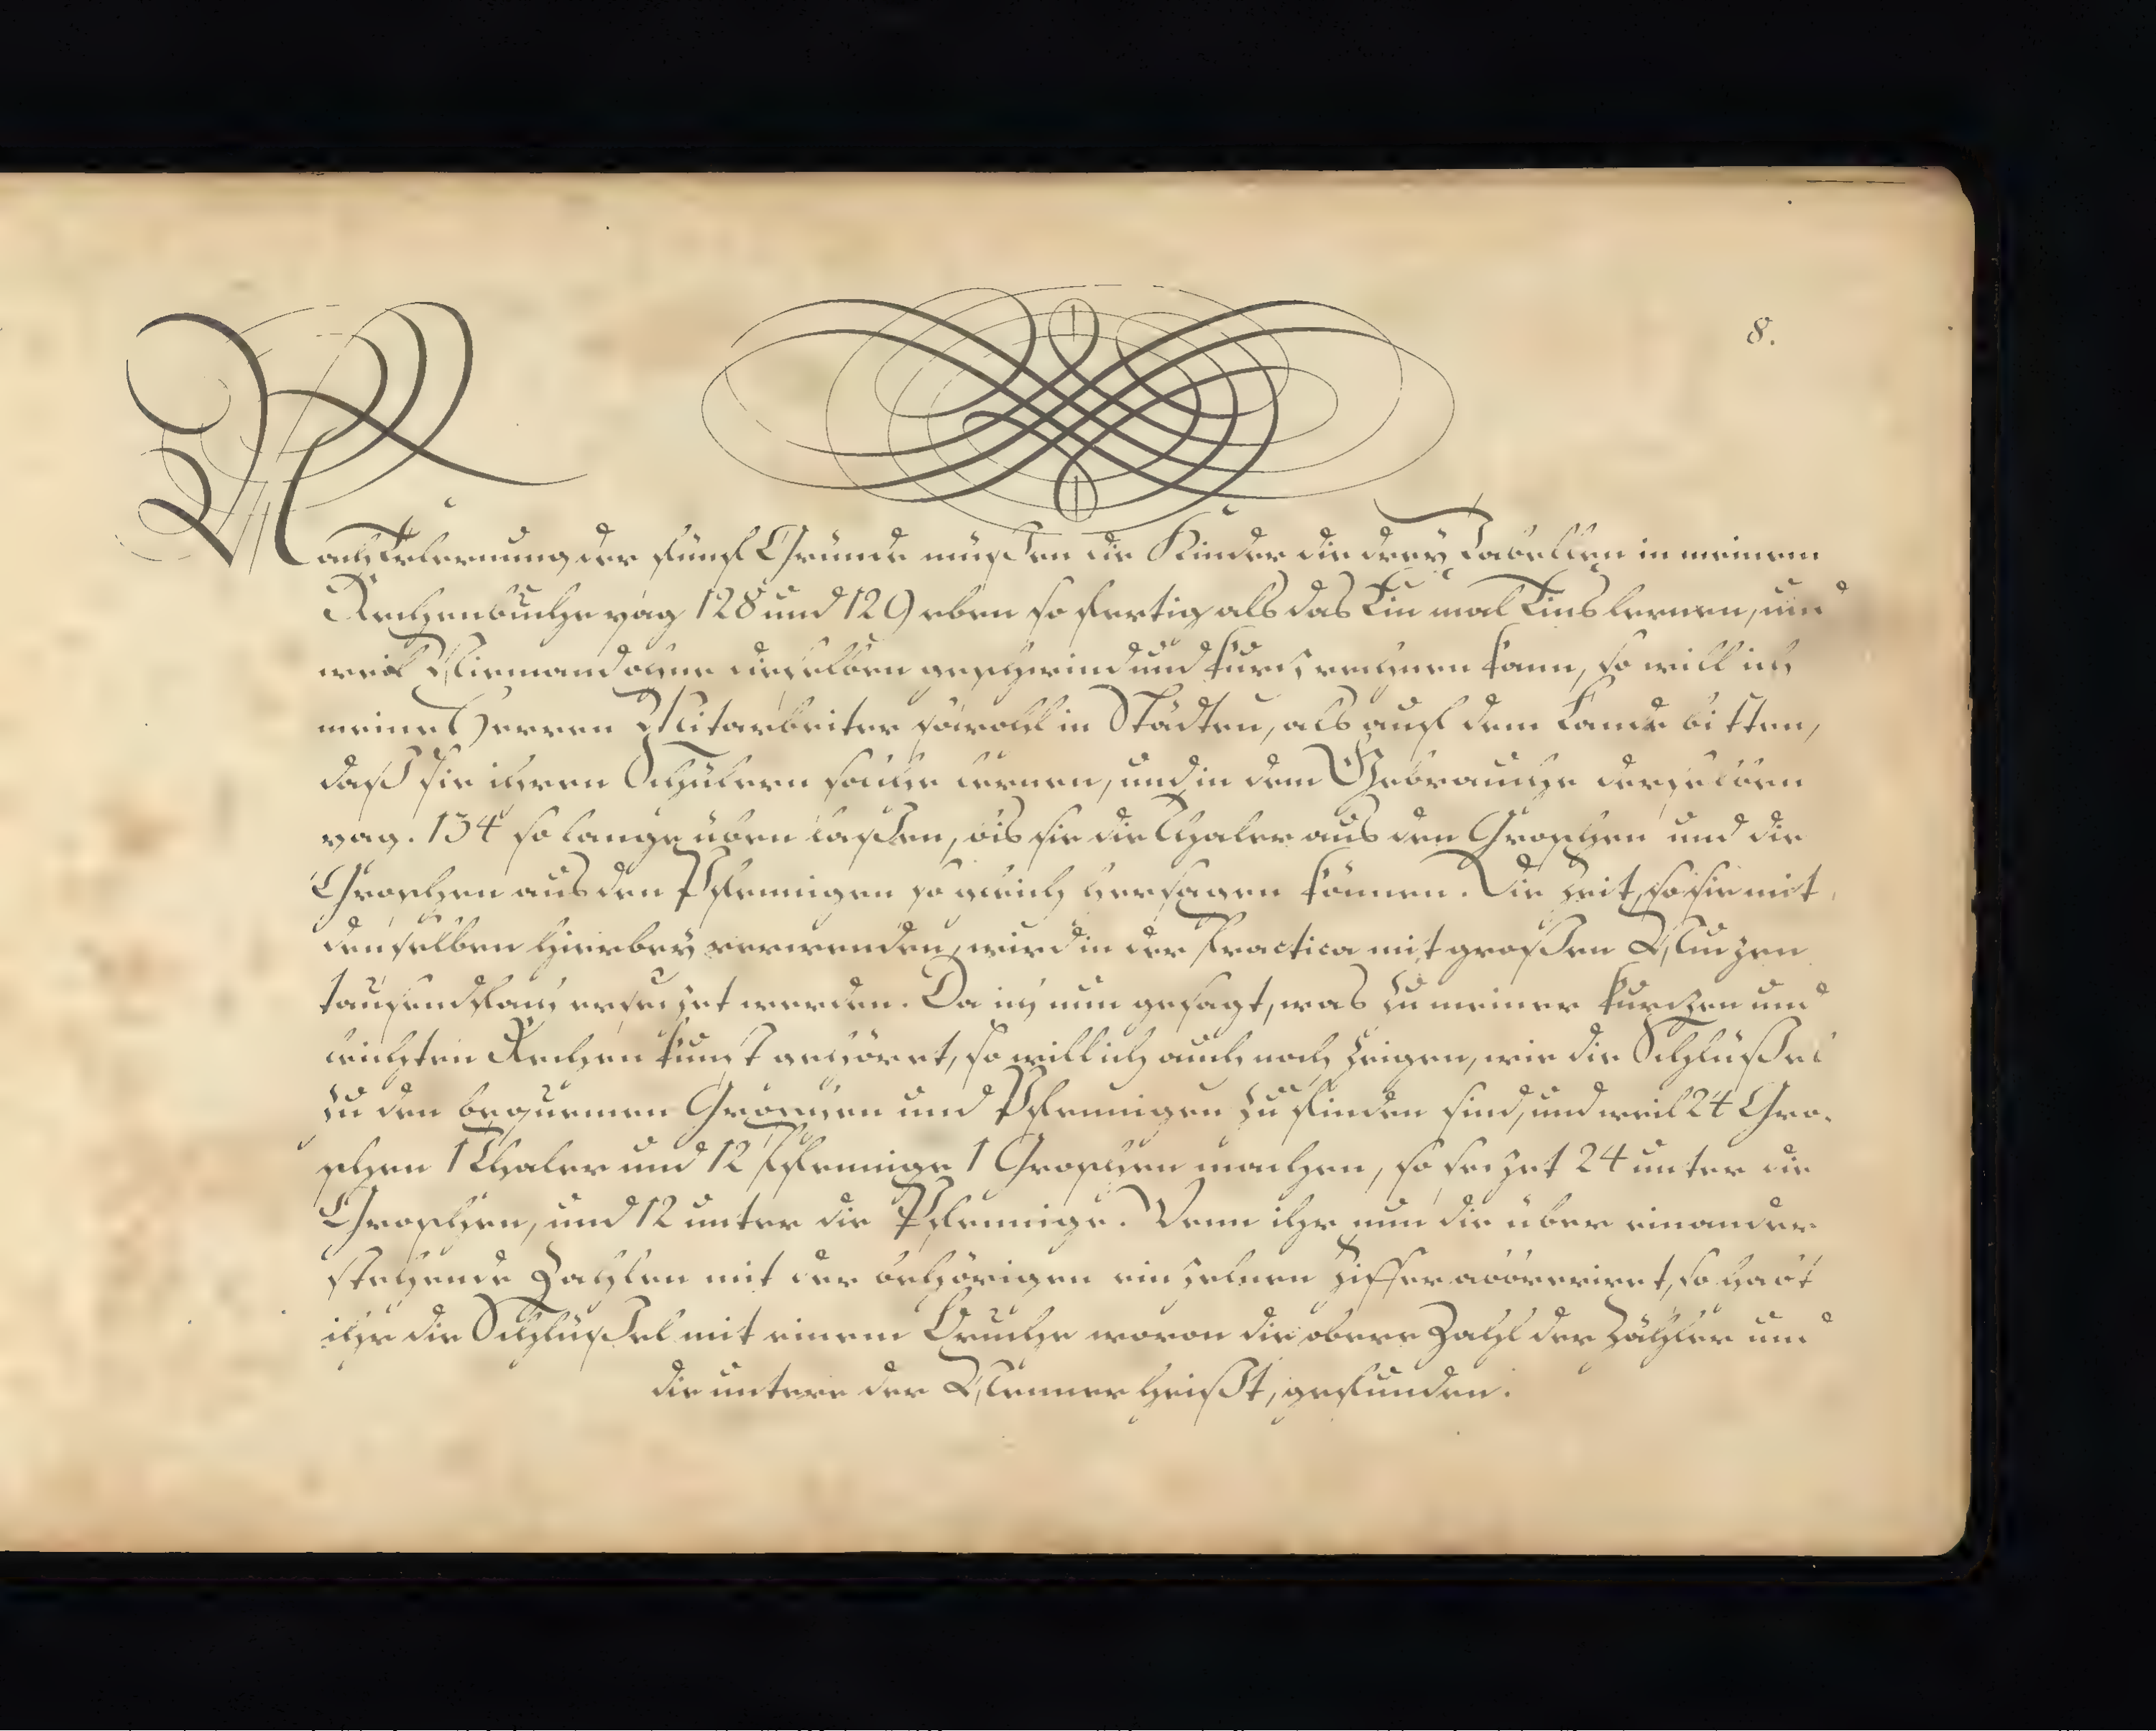 8.
Nach Erlernung der fünf Gründe müßen die Kinder die drey Tabellen in meinem
Rechenbuche pag 128 und 129 eben so fertig als das Ein mal Eins lernen, und
weil Niemand ohne dieselben geschwind und kurtz rechnen kann, so will ich
meine Herren Mitarbeiter sowohl in Städten, als auf dem Lande bitten,
daß sie ihren Schülern solche lernen, und in dem Gebrauche derselben
pag. 134 so lange üben laßen, bis sie die Thaler aus den Groschen und die
Groschen aus den Pfennigen so gleich hersagen können. Die Zeit, so sie mit
denselben hierbey verwenden, wird in der Practica mit großen Nutzen
tausendfach ersetzet werden. Da ich nun gesagt, was zu meiner kurtzen und
leichten Rechenkunst gehöret, so will ich auch noch zeigen, wie die Schlüßel
zu den bequemen Groschen und Pfennigen zu finden sind, und weil 24 Gro-
schen 1 Thaler und 12 Pfennige 1 Groschen machen, so setzet 24 unter die
Groschen, und 12 unter die Pfennige. Wenn ihr nun die über einander
stehende Zahlen mit der behörigen einzelnen Ziffer abbreviret, so habt
ihr die Schlüßel mit einem Bruche wovon die obere Zahl der Zähler und
die untere der Nenner heißt, gefunden.